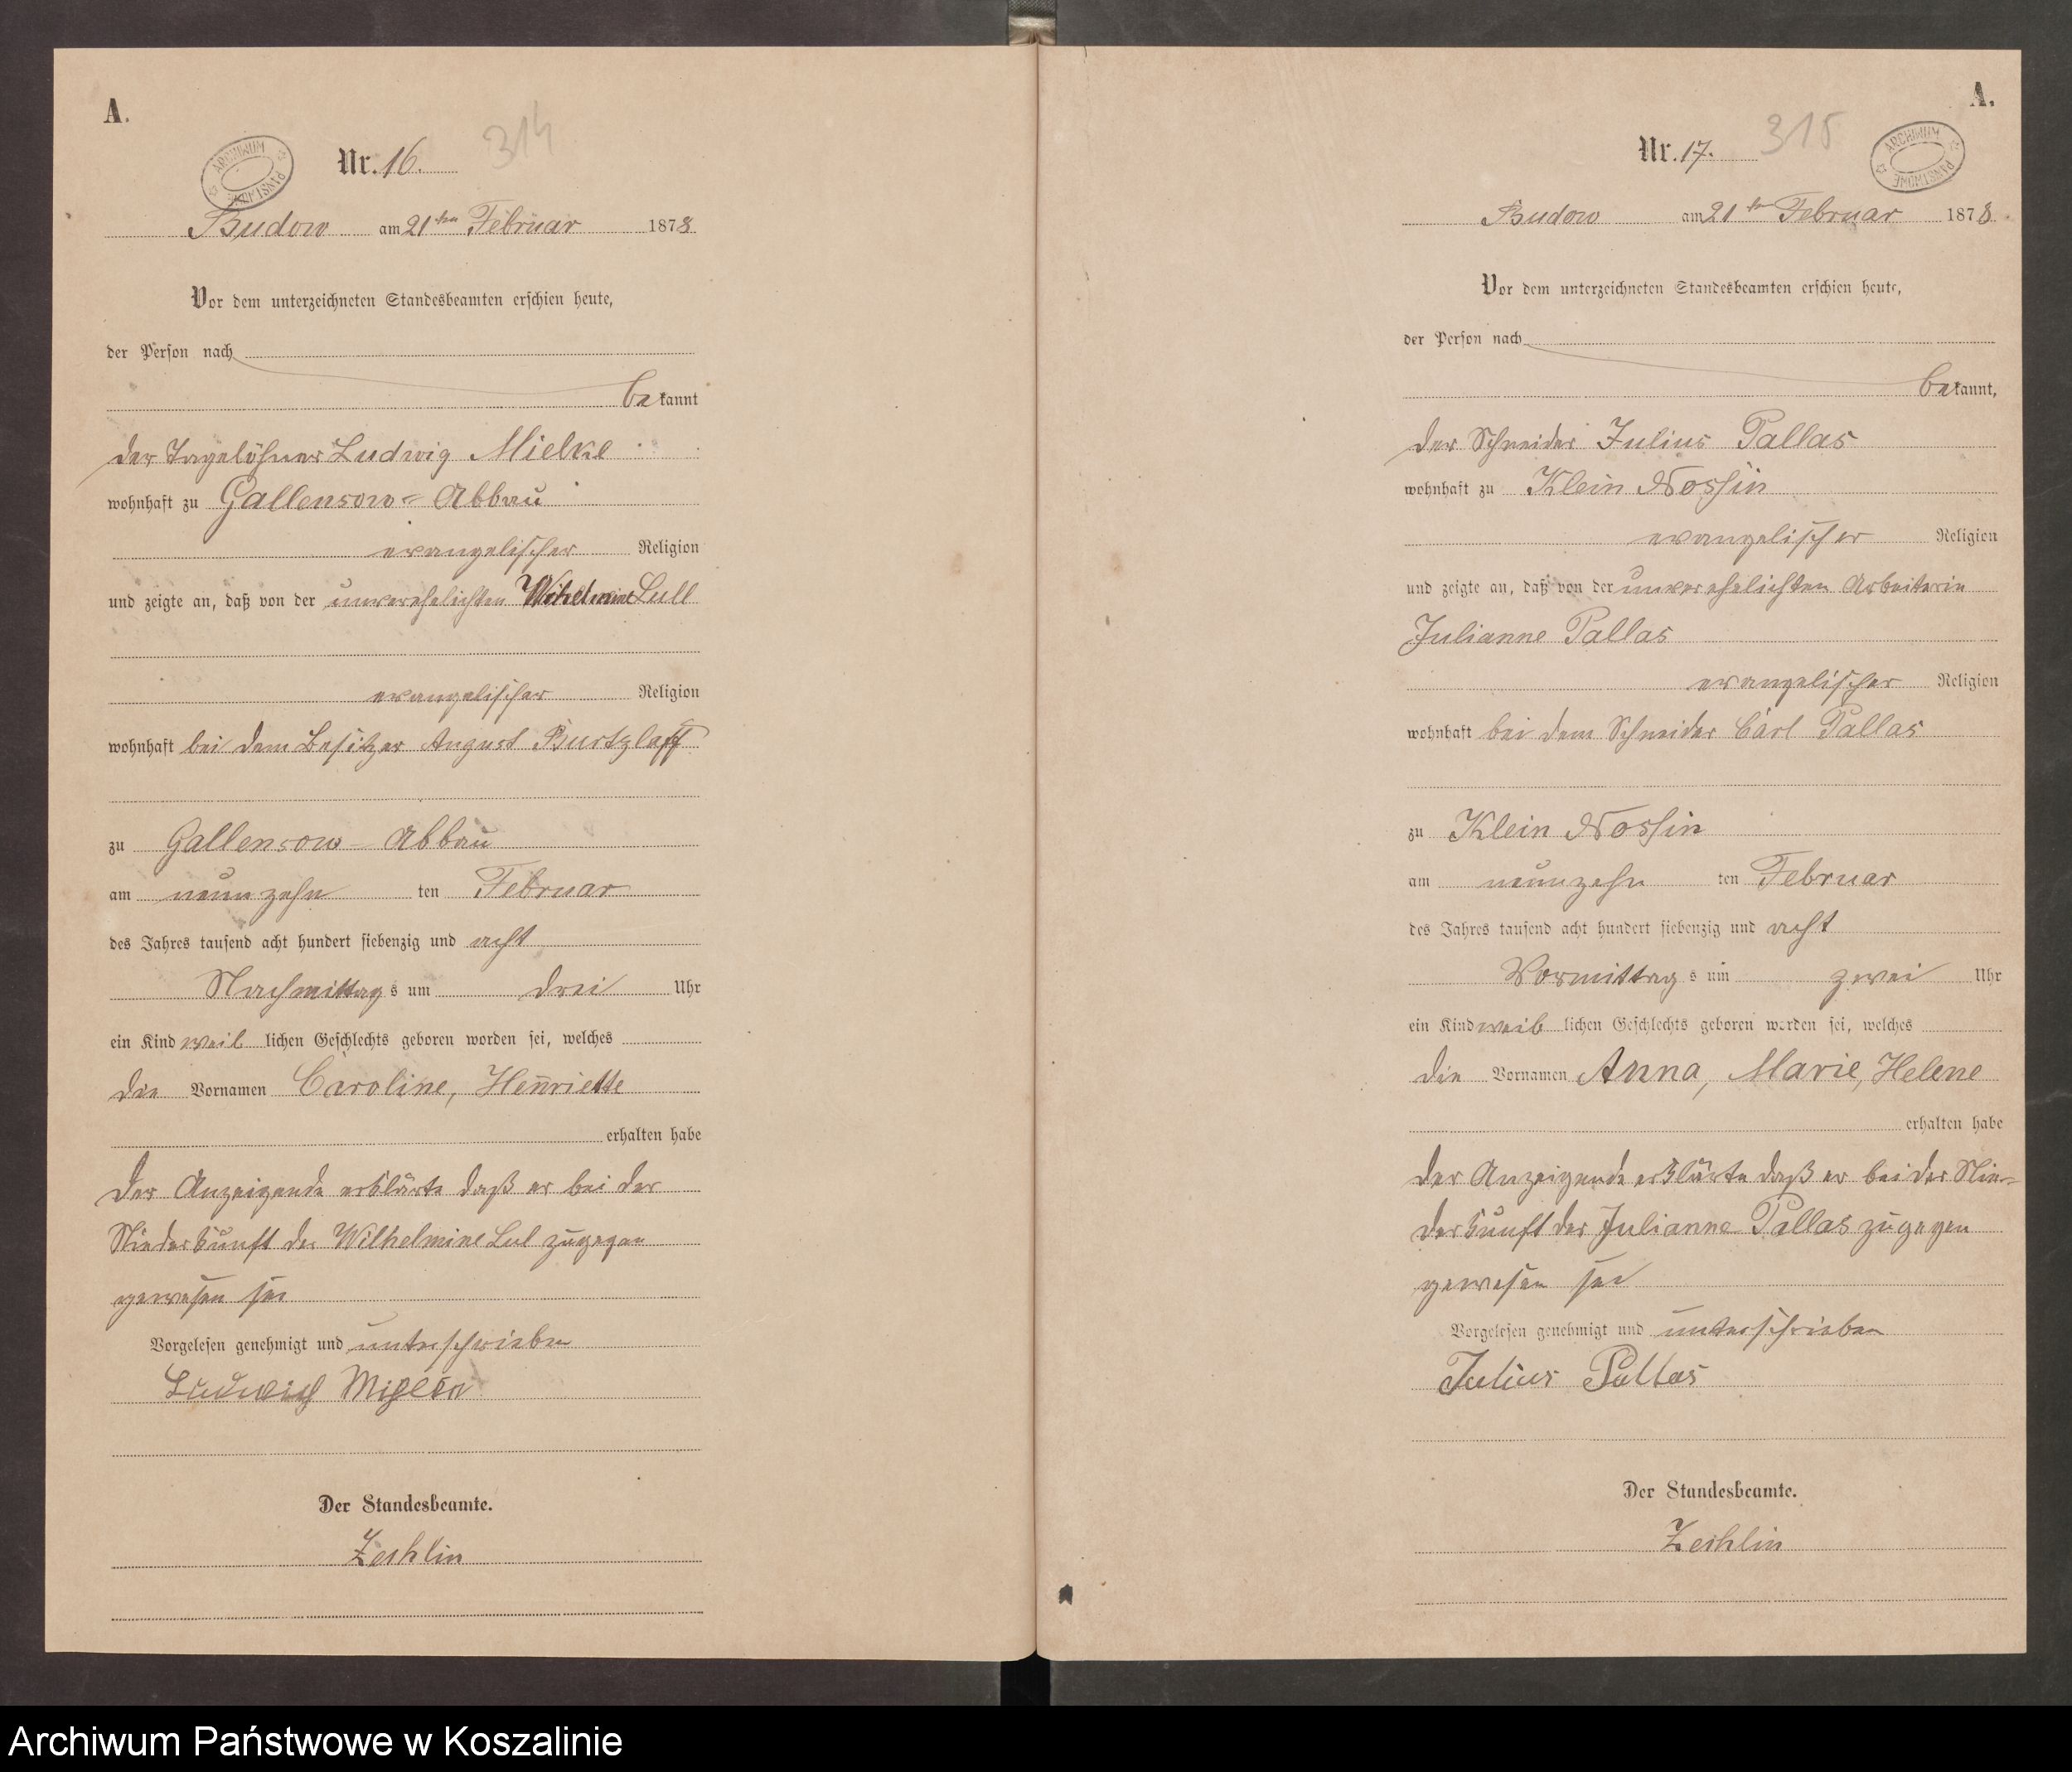 A.
ARCHIWUM PAŃSTWOWE
Nr. 16. 314
Budow am 21ten Februar 1878
Vor dem unterzeichneten Standesbeamten erschien heute,
der Person nach
bekannt
der Tagelöhner Ludwig Mielke
wohnhaft zu Gallensow-Abbau
evangelischer Religion
und zeigte an, daß von der unverehelichten Wihelmine Lull
evangelischer Religion
wohnhaft bei dem Besitzer August Burtzlaff
zu Gallensow-Abbau
am neunzehn ten Februar
des Jahres tausend acht hundert siebenzig und acht
Nachmittags um drei Uhr
ein Kind weiblichen Geschlechts geboren worden sei, welches
die Vornamen Caroline, Henriette
erhalten habe
Der Anzeigende erklärte daß er bei der
Niederkunft der Wilhelmine Lul zugegen
gewesen sei
Vorgelesen genehmigt und unterschrieben
Ludwig
Der Standesbeamte.
Zechlin
A.
ARCHIWUM PAŃSTWOWE
Nr. 17. 315
Budow am 21ten Februar 1878
Vor dem unterzeichneten Standesbeamten erschien heute,
der Person nach
bekannt,
der Schneider Julius Pallas
wohnhaft zu Klein Nossin
evangelischer Religion
und zeigte an, daß von der unverehelichten Arbeiterin
Julianne Pallas
evangelischer Religion
wohnhaft bei dem Schneider Carl Pallas
zu Klein Nossin
am neunzehn ten Februar
des Jahres tausend acht hundert siebenzig und acht
Vormittags um zwei Uhr
ein Kind weiblichen Geschlechts geboren worden sei, welches
die Vornamen Anna, Marie, Helene
erhalten habe
Der Anzeigende erklärte daß er bei der Nie-
derkunft der Julianne Pallas zugegen
gewesen sei
Vorgelesen genehmigt und unterschrieben
Julius Pallas
Der Standesbeamte.
Zechlin
Archiwum Państwowe w Koszalinie